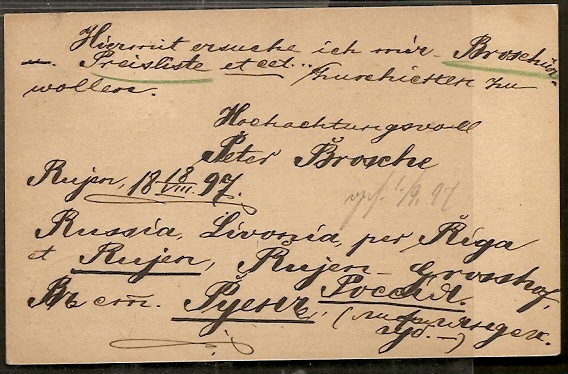 Hiermit ersuche ich mir Broschür.
u. Preisliste et cet... zuschicken zu
wollen.
Hochachtungsvoll
Peter Brosche
Rujen, 18 18/VIII. 97.
1./9. 97
Russia, Livonia, per Riga
et Rujen, Rujen-Grosshof,
Въ ст. Руенъ, Россія.